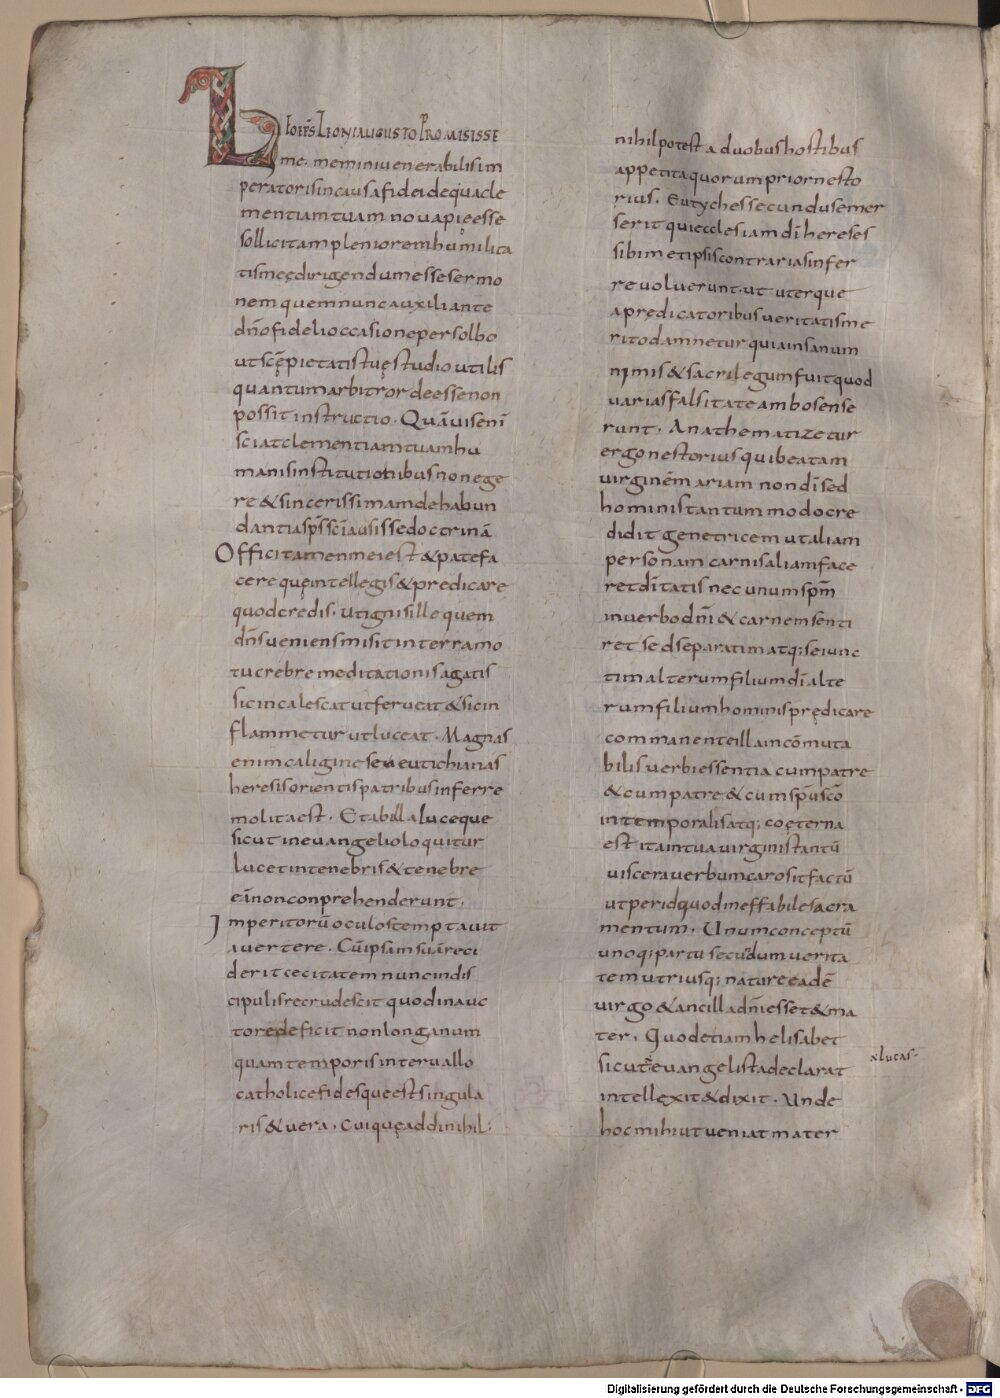 L eo eps Leoni augusto Promisisse
me. memini uenerabilis im
perator is in causa fidei de qua cle
mentiam tuam noua pie esse
sollicitam pleniorem humilita
tis meę dirigendum esse sermo
nem quem nunc auxiliante
dño fideli occasione persolbo
ut scę pietatis tuę studio utilis
quantum arbitror deesse non
possit instructio. Quāuis eni
sciat clementiam tuam hu
manis institutionibus non ege
re & sincerissimam de habun
dantia sps sci ausisse doctrinā
Officii tamen mei est & patefa
cere quę intellegis & predicare
quod credis. Ut ignis ille quem
dñs ueniens misit in terram o
tu crebre meditationis agatis
sic incalescat ut ferueat & sic in
flammetur ut luceat. Magnas
enim caligines eutichianas
heresis orientis patribus inferre
molita est. Et ab illa luce que
sicut in euangelio loquitur
lucet in tenebris & tenebre
eā non conprehenderunt;
Imperitorū oculos temptauit
auertere. Cū ipsam suā reci
derit cecitatem nunc in dis
cipulis recrudescit quod in auc
tore deficit non longa num
quam temporis interuallo
catholice fides que est singula
ris & uera. Cuique addi nihil;
nihil potest a duobus hostibus
appetita quorum prior nesto
rius. Eutyches secundus emer
serit qui ecclesiam di hereses
sibimetipsis contrarias infer
re uoluerunt. ut uterque
a prędicatoribus ueritatis me
rito damnetur quia insanum
nimis & sacrilegum fuit quod
uarias falsitate ambo sense
runt. Anathematizetur
ergo nestorius qui beatam
uirginem mariam non di sed
hominis tantummodo cre
didit genetricem ut aliam
personam carnis aliam face
ret ditatis nec unum spm
in uerbo dni & carne senti
ret sed separatim atq; seiunc
tim alterum filium di alte
rum filium hominis prędicare
commanente illa incōmuta
bilis uerbi essentia cum patre
& cum patre & cum spu sco
intemporalis atq; coęterna
est ita intua uirginis tantū
uiscera uerbum caro sit factū
ut per id quod ineffabile sacra
mentum. Unum conceptū
unoq; partu secūdum uerita
tem utriusq; nature eadē
uirgo & ancilla dni esset & ma
ter. Quod etiam helisabet
sicut euangelista declarat
intellexit & dixit. Unde
hoc mihi ut ueniat mater
lucas
Digitalisierung gefördert durch die Deutsche Forschungsgemeinschaft - DFG